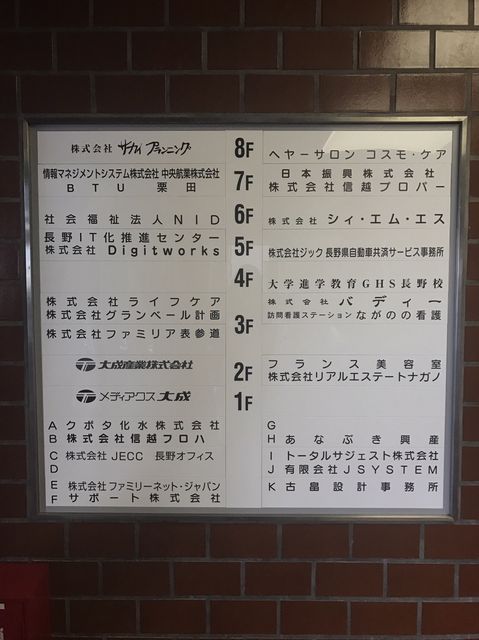 株式会社 サカイ プランニング 8F ヘヤーサロン コスモ・ケア
情報マネジメントシステム株式会社 中央航業株式会社 7F 日本振興株式会社
BTU 栗田 株式会社信越プロパー
社会福祉法人NID 6F 株式会社 シィ・エム・エス
長野IT化推進センター 5F 株式会社ジック 長野県自動車共済サービス事務所
株式会社 Digitworks
4F 大学進学教育GHS長野校
株式会社ライフケア 株式会社 バディー
株式会社グランベール計画 3F 訪問看護ステーション ながのの看護
株式会社ファミリア表参道
大成産業株式会社 2F フランス美容室
株式会社リアルエステートナガノ
メディアクス大成 1F
A クボタ化水株式会社 G
B 株式会社信越フロハ H あなぶき興産
C 株式会社JECC 長野オフィス I トータルサジェスト株式会社
D J 有限会社JSYSTEM
E 株式会社ファミリーネット・ジャパン K 古畠設計事務所
F サポート株式会社